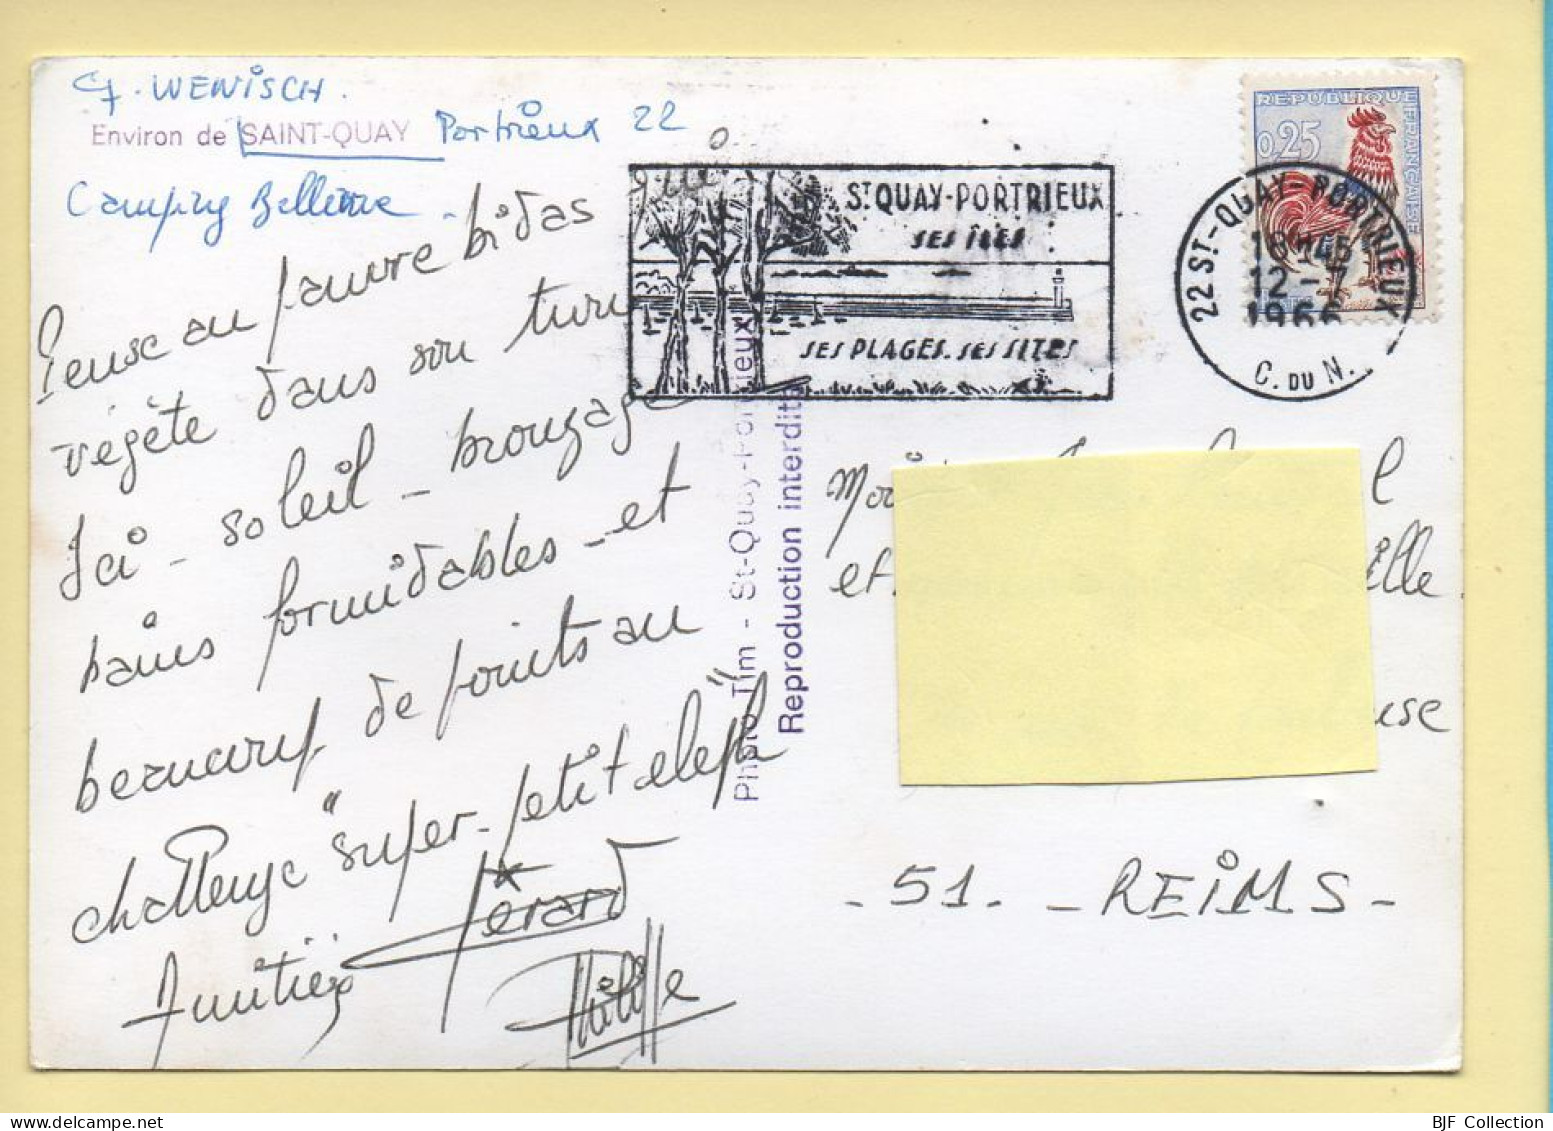 G. WENISCH.
Environ de SAINT-QUAY Portrieux 22
Camping Bellevue -
Pense au pauvre bidas
végète dans son turn
Ici - soleil - bronzage
bains formidables - et
beaucoup de points au
challenge "super-petit eleph"
Amitiés Gérard
Philippe
Photo Tim - St-Quay-Portrieux
Reproduction interdite
ST QUAY-PORTRIEUX
SES ÎLES
SES PLAGES. SES SITES
RÉPUBLIQUE FRANÇAISE
0,25
22 ST-QUAY-PORTRIEUX
12 - 7
1966
C. DU N.
et
elle
- 51. - REIMS -
BJF Collection